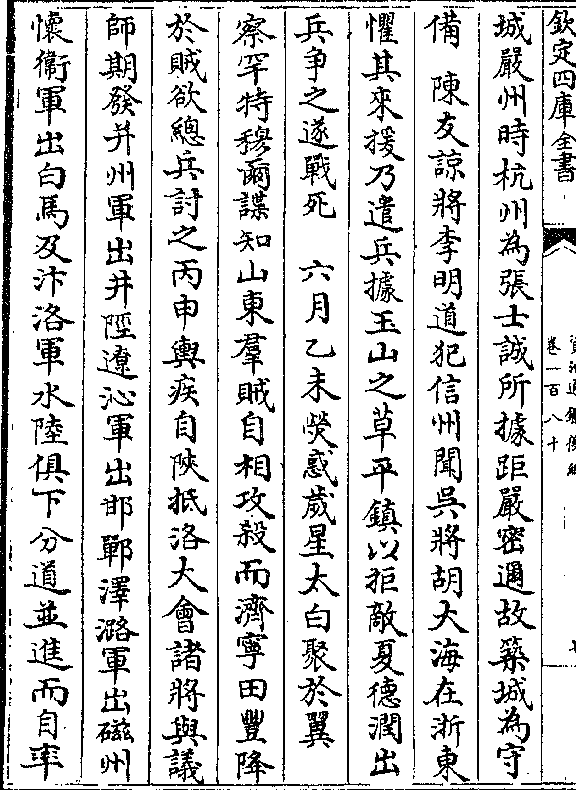 欽定四庫全書
卷一百八十
城嚴州時杭州為張士誠所據距嚴密邇故築城為守
備　陳友諒將李明道犯信州聞吳將胡大海在浙東
懼其來援乃遣兵據玉山之草平鎮以拒敵夏德潤出
兵爭之遂戰死　六月乙未熒惑歲星太白聚於翼
察罕特穆爾諜知山東羣賊自相攻殺而濟寧田豐降
於賊欲總兵討之丙申輿疾自陝抵洛大會諸將與議
師期發并州軍出井陘遼沁軍出邯鄲澤潞軍出磁州
懷衞軍出白馬及汴洛軍水陸俱下分道並進而自率